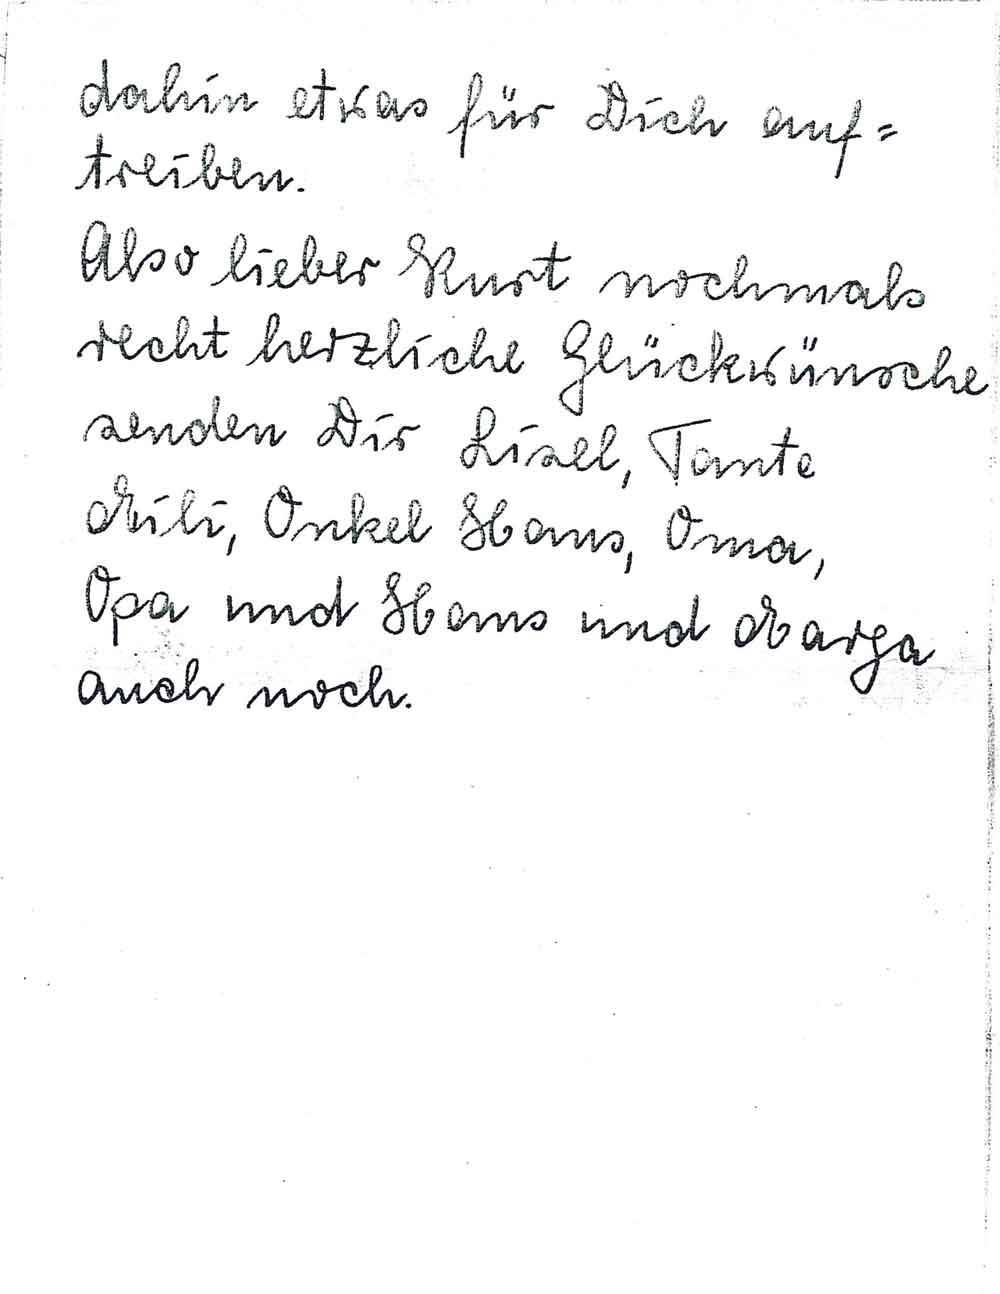 dahin etwas für Dich auf=
treiben.
Also lieber Kurt nochmals
recht herzliche Glückwünsche
senden Dir Lisel, Tante
Mili, Onkel Hans, Oma,
Opa und Hans und Marga
auch noch.